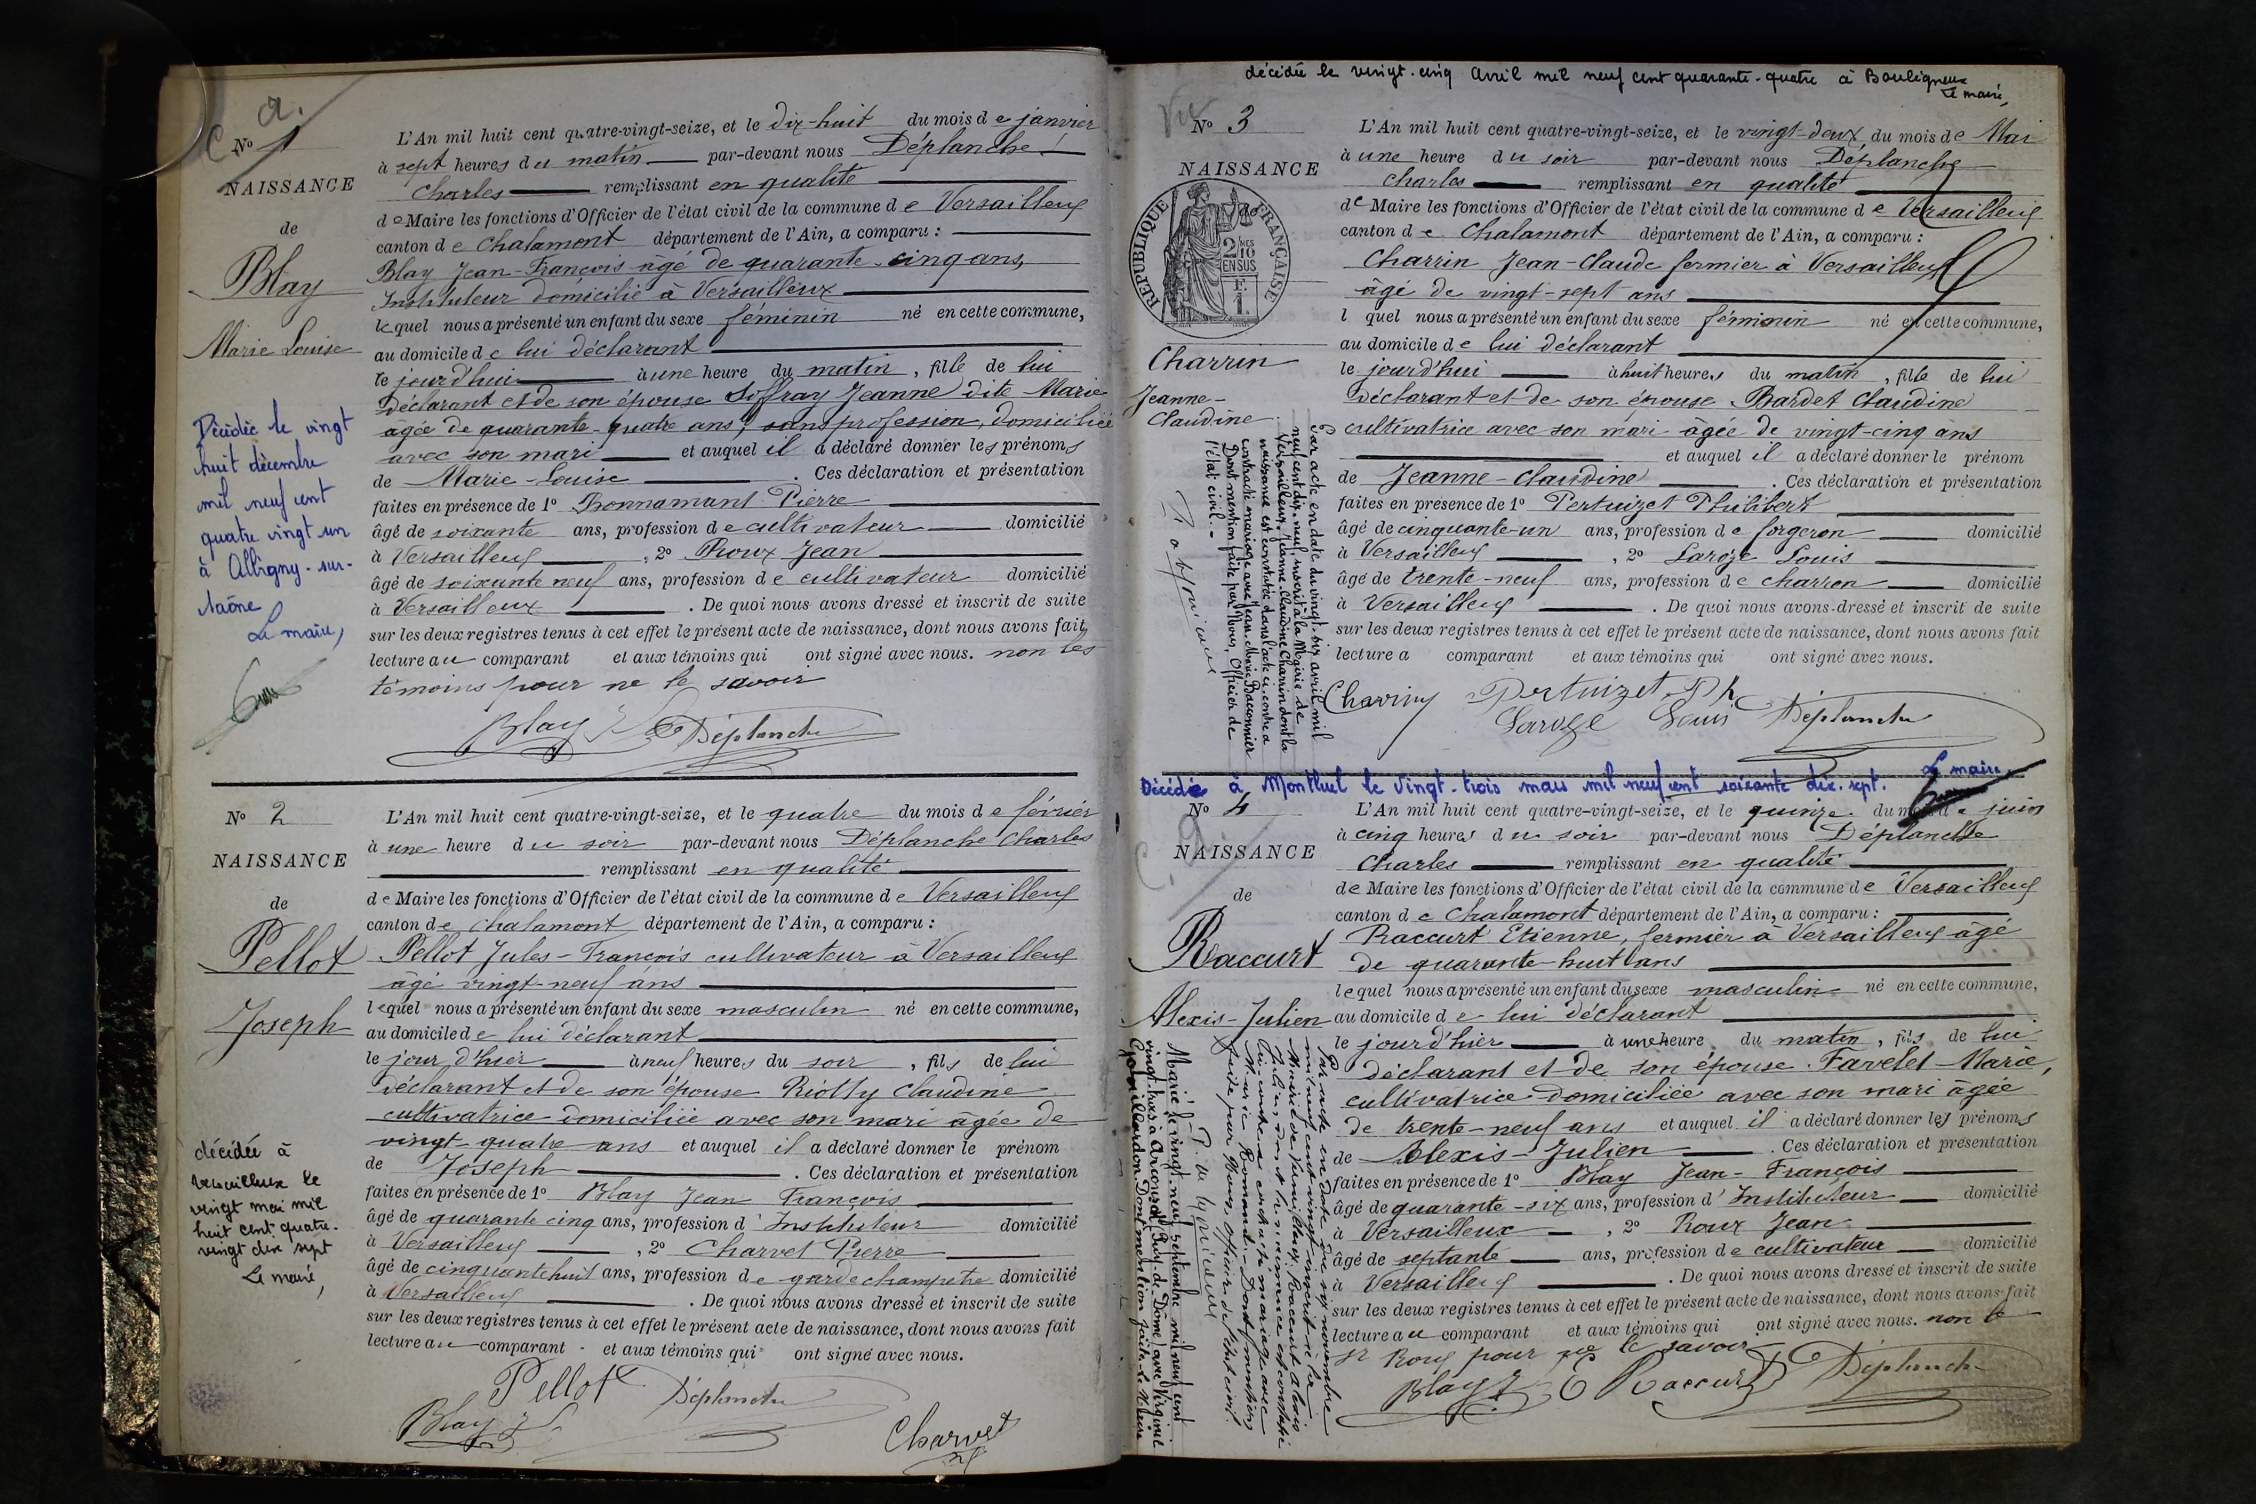 a.
C No 1
NAISSANCE
de
Blay
Marie Louise
Décédée le vingt
huit décembre
mil neuf cent
quatre vingt un
à Albigny-sur-
Saône
Le maire,
L'An mil huit cent quatre-vingt-seize, et le dix-huit du mois de janvier
à sept heures du matin par-devant nous Déplanche
Charles remplissant en qualité
de Maire les fonctions d'Officier de l'état civil de la commune de Versailleux
canton de Chalamont département de l'Ain, a comparu :
Blay Jean-François âgé de quarante-cinq ans,
Instituteur domicilié à Versailleux
lequel nous a présenté un enfant du sexe féminin né en cette commune,
au domicile de lui déclarant
le jourd'hui à une heure du matin, fille de lui
déclarant et de son épouse Soffray Jeanne dite Marie
âgée de quarante-quatre ans, sans profession, domiciliée
avec son mari et auquel il a déclaré donner les prénoms
de Marie-Louise. Ces déclaration et présentation
faites en présence de 1º Bonnamant Pierre
âgé de soixante ans, profession de cultivateur domicilié
à Versailleux, 2º Roux Jean
âgé de soixante neuf ans, profession de cultivateur domicilié
à Versailleux. De quoi nous avons dressé et inscrit de suite
sur les deux registres tenus à cet effet le présent acte de naissance, dont nous avons fait,
lecture au comparant et aux témoins qui ont signé avec nous. non les
témoins pour ne le savoir
Blay J Déplanche
No 2
NAISSANCE
de
Pellot
Joseph
décédée à
Versailleux le
vingt mai mil
huit cent quatre-
vingt dix sept
Le maire,
L'An mil huit cent quatre-vingt-seize, et le quatre du mois de février
à une heure du soir par-devant nous Déplanche Charles
remplissant en qualité
de Maire les fonctions d'Officier de l'état civil de la commune de Versailleux
canton de Chalamont département de l'Ain, a comparu :
Pellot Jules-François cultivateur à Versailleux
âgé vingt-neuf ans
lequel nous a présenté un enfant du sexe masculin né en cette commune,
au domicile de lui déclarant
le jour d'hier à neuf heures du soir, fils de lui
déclarant et de son épouse Riolly Claudine
cultivatrice domiciliée avec son mari âgée de
vingt-quatre ans et auquel il a déclaré donner le prénom
de Joseph. Ces déclaration et présentation
faites en présence de 1º Blay Jean François
âgé de quarante cinq ans, profession d'Instituteur domicilié
à Versailleux, 2º Charvet Pierre
âgé de cinquante huit ans, profession de garde champetre domicilié
à Versailleux. De quoi nous avons dressé et inscrit de suite
sur les deux registres tenus à cet effet le présent acte de naissance, dont nous avons fait
lecture au comparant et aux témoins qui ont signé avec nous.
Pellot Déplanche
Blay J Charvet
décédée le vingt-cinq avril mil neuf cent quarante-quatre à Bouligneux
Le maire,
Vu
No 3
NAISSANCE
de
RÉPUBLIQUE FRANÇAISE
2 10MES
EN SUS
F.
1.
Charrin
Jeanne-
Claudine
Par acte en date du vingt-six avril mil
neuf cent dix-neuf, inscrit à la Mairie de
Versailleux, Jeanne Claudine Charrin dont la
naissance est constatée dans l'acte ci-contre a
contracté mariage avec Jean-Marie Baconnier
Dont mention faite par Nous, Officier de
l'état civil.-
L'An mil huit cent quatre-vingt-seize, et le vingt-deux du mois de Mai
à une heure du soir par-devant nous Déplanche
Charles remplissant en qualité
de Maire les fonctions d'Officier de l'état civil de la commune de Versailleux
canton de Chalamont département de l'Ain, a comparu :
Charrin Jean-Claude fermier à Versailleux
âgé de vingt-sept ans
l quel nous a présenté un enfant du sexe féminin né en cette commune,
au domicile de lui déclarant
le jourd'hui à huit heures du matin, fille de lui
déclarant et de son épouse Bardet Claudine
cultivatrice avec son mari âgée de vingt-cinq ans
et auquel il a déclaré donner le prénom
de Jeanne-Claudine. Ces déclaration et présentation
faites en présence de 1º Pertuizet Philibert
âgé de cinquante-un ans, profession de forgeron domicilié
à Versailleux, 2º Laroze Louis
âgé de trente-neuf ans, profession de charron domicilié
à Versailleux. De quoi nous avons dressé et inscrit de suite
sur les deux registres tenus à cet effet le présent acte de naissance, dont nous avons fait
lecture a comparant et aux témoins qui ont signé avec nous.
Charrin Pertuizet Ph
Laroze Louis Déplanche
Décédé à Montluel le vingt-trois mars mil neuf cent soixante dix-sept. Le maire,
No 4
C. a
NAISSANCE
de
Raccurt
Alexis-Julien
Par acte en date du six novembre
mil neuf cent vingt inscrit à la
Mairie de Versailleux, Raccurt Alexis
Julien, dont la naissance est constatée
ci-contre a contracté mariage avec
Marie Romand.- Dont mention
faite par Nous, Officier de l'état civil.
Marié le vingt-neuf septembre mil neuf cent
L'An mil huit cent quatre-vingt-seize, et le quinze du mois de juin
à cinq heures du soir par-devant nous Déplanche
Charles remplissant en qualité
de Maire les fonctions d'Officier de l'état civil de la commune de Versailleux
canton de Chalamont département de l'Ain, a comparu :
Raccurt Etienne, fermier à Versailleux âgé
de quarante-huit ans
lequel nous a présenté un enfant du sexe masculin né en cette commune,
au domicile de lui déclarant
le jourd'hier à une heure du matin, fils de lui
déclarant et de son épouse Favelet Marie,
cultivatrice domiciliée avec son mari âgée
de trente-neuf ans et auquel il a déclaré donner les prénoms
de Alexis-Julien. Ces déclaration et présentation
faites en présence de 1º Blay Jean-François
âgé de quarante-six ans, profession d'Instituteur domicilié
à Versailleux, 2º Roux Jean
âgé de septante ans, profession de cultivateur domicilié
à Versailleux. De quoi nous avons dressé et inscrit de suite
sur les deux registres tenus à cet effet le présent acte de naissance, dont nous avons fait
lecture au comparant et aux témoins qui ont signé avec nous. non le
sr Roux pour ne le savoir
Blay J E Raccurt Déplanche